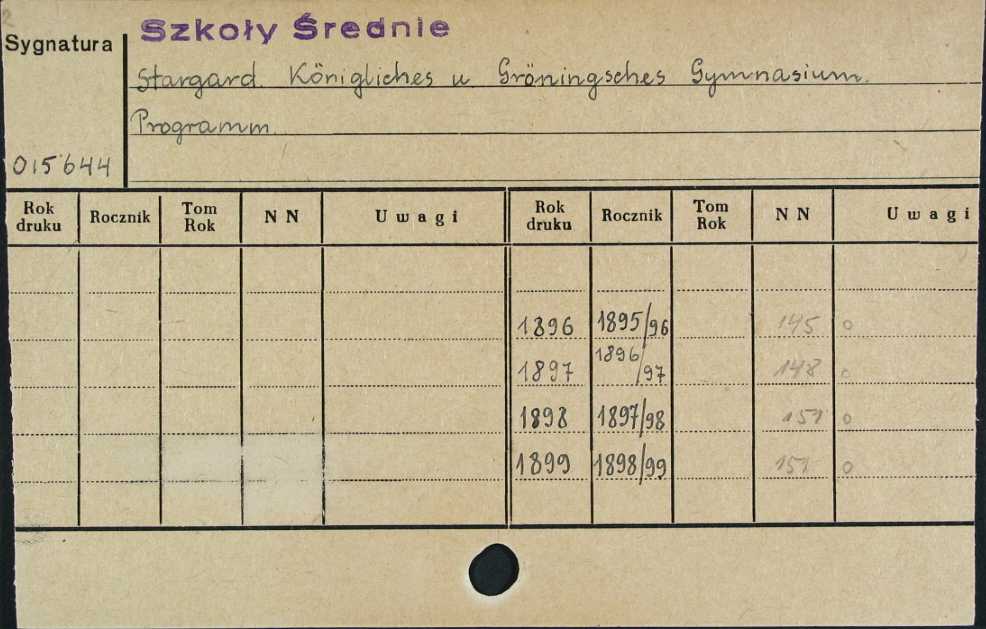 2
Szkoły Średnie
Sygnatura
Stargard. Königliches u Gröningsches Gymnasium.
Programm.
015644
Rok druku Rocznik Tom Rok N N U w a g i Rok druku Rocznik Tom Rok N N U w a g i
1896 1895/96 145 o
1897 1896/97 148 o
1898 1897/98 151 o
1899 1898/99 151 o